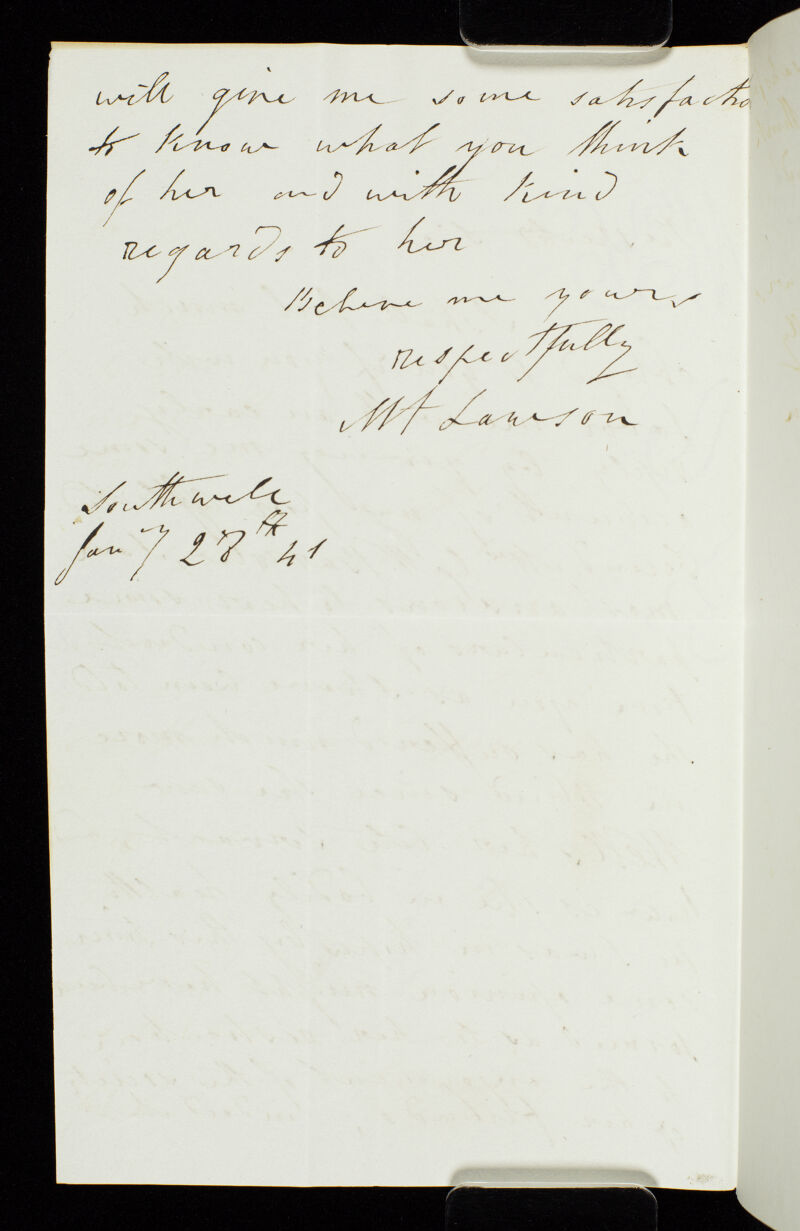 will give me some satisfactio
to know what you think
of her and with kind
regards to her
Believe me yours
respectfully
Mt Lawson
Southwell
Jany 28th 41